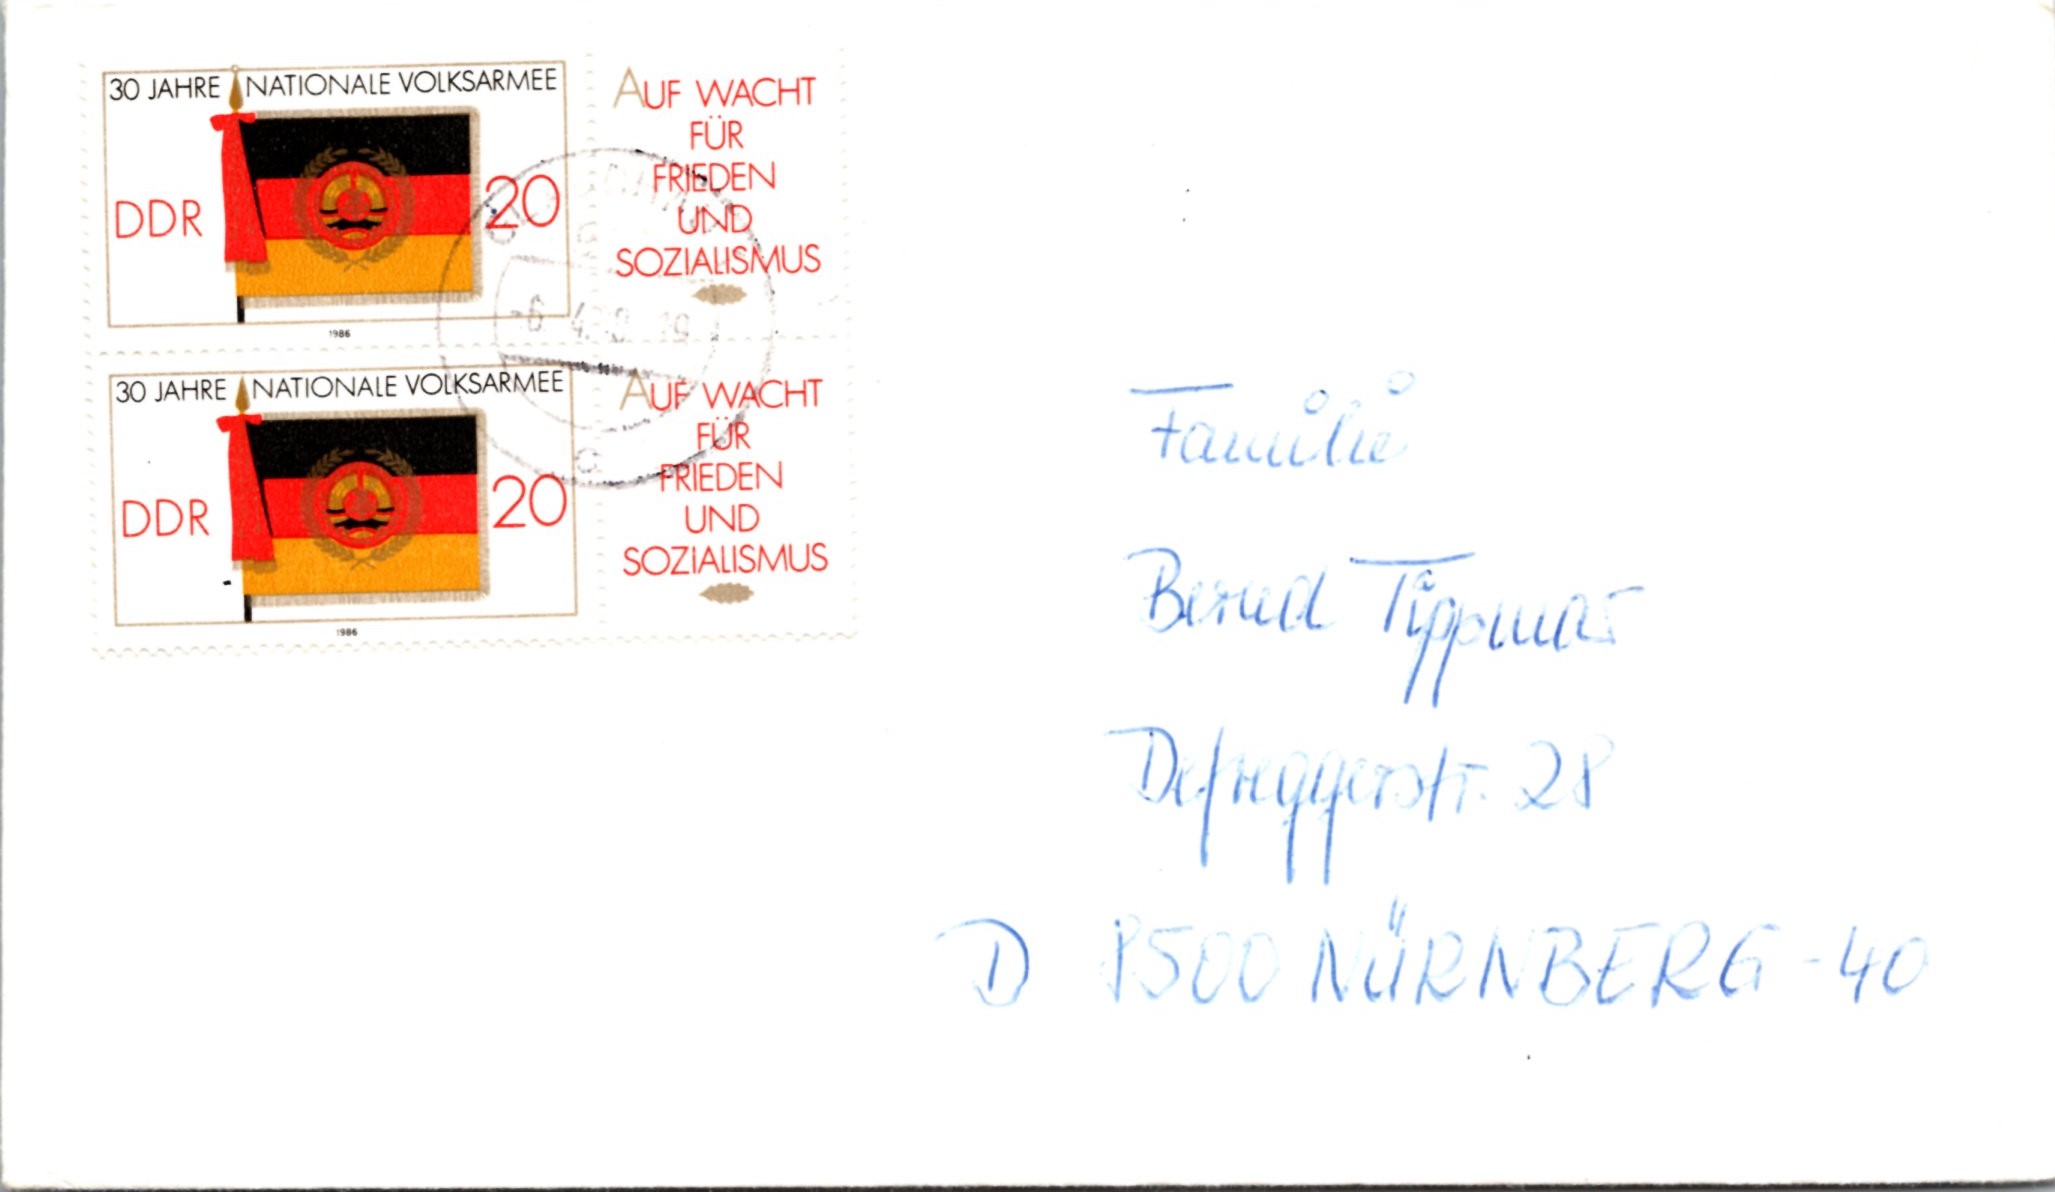 30 JAHRE NATIONALE VOLKSARMEE
DDR 20
1986
AUF WACHT
FÜR
FRIEDEN
UND
SOZIALISMUS
30 JAHRE NATIONALE VOLKSARMEE
DDR 20
1986
AUF WACHT
FÜR
FRIEDEN
UND
SOZIALISMUS
Familie
Bernd Tippmar
Defreggerstr. 28
D 8500 NÜRNBERG - 40